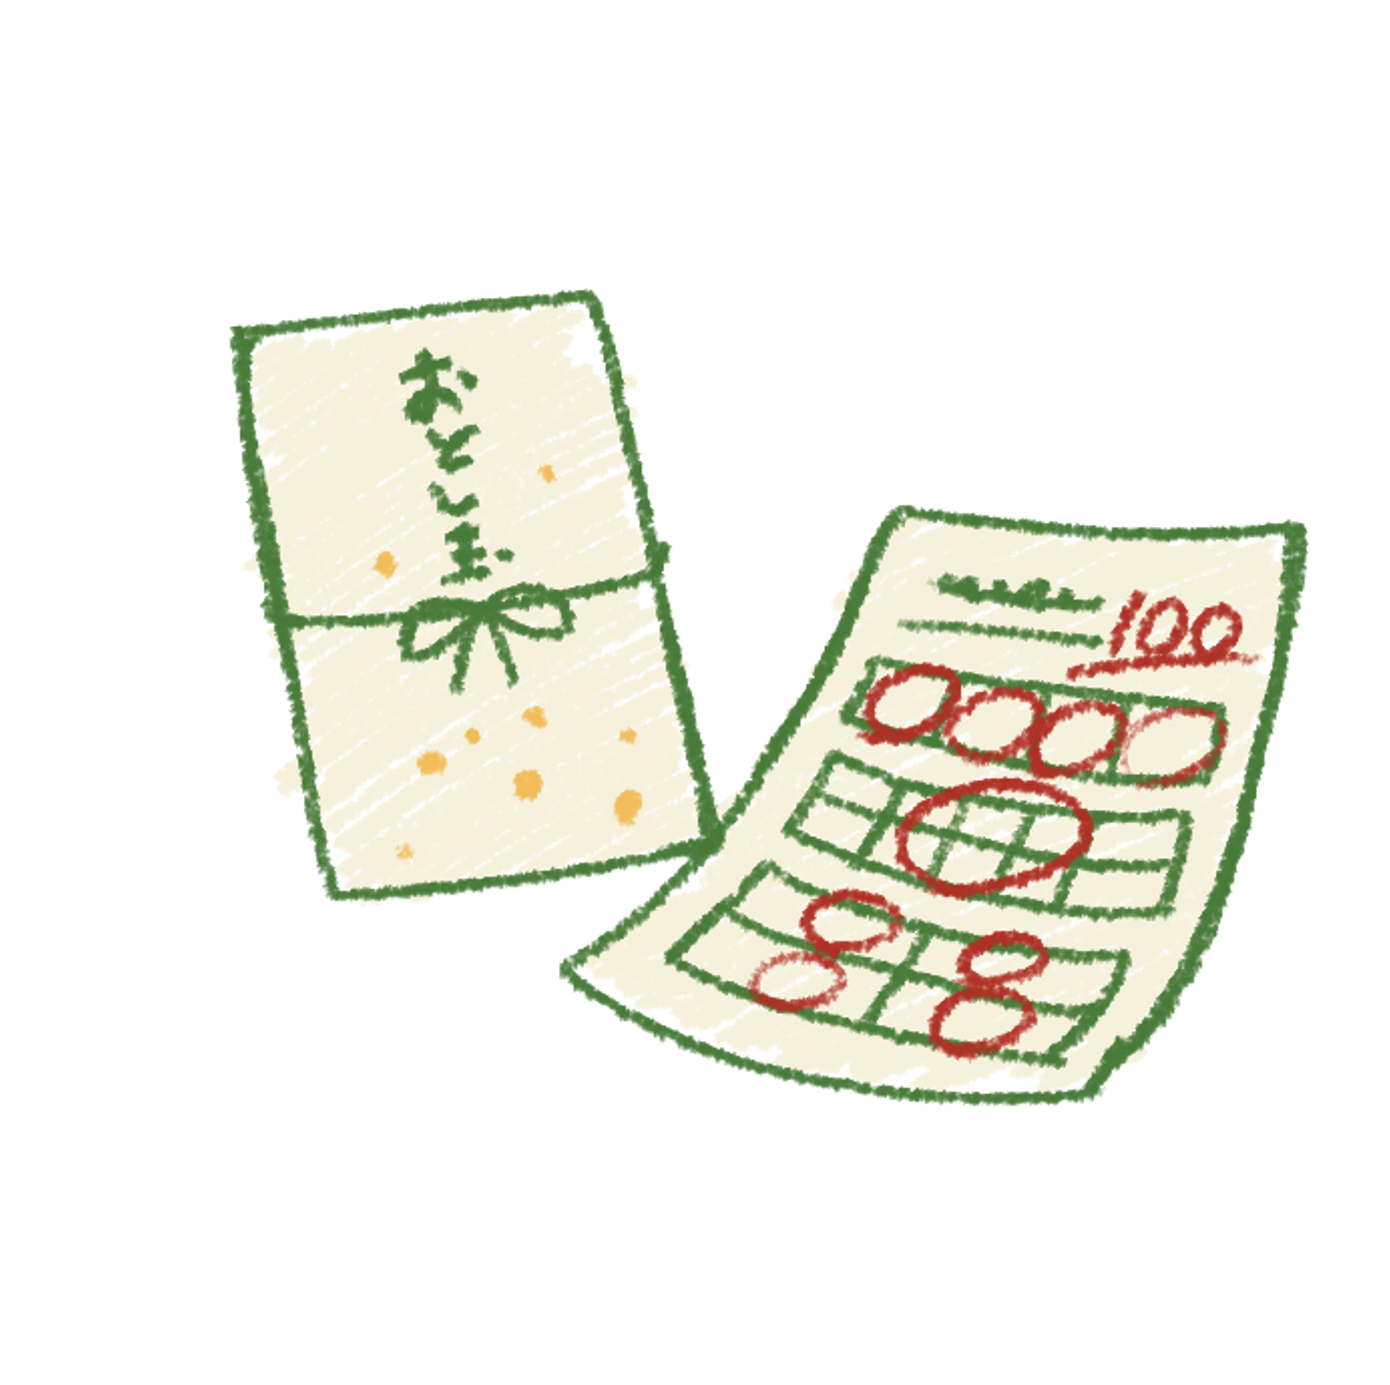 おとし玉
100